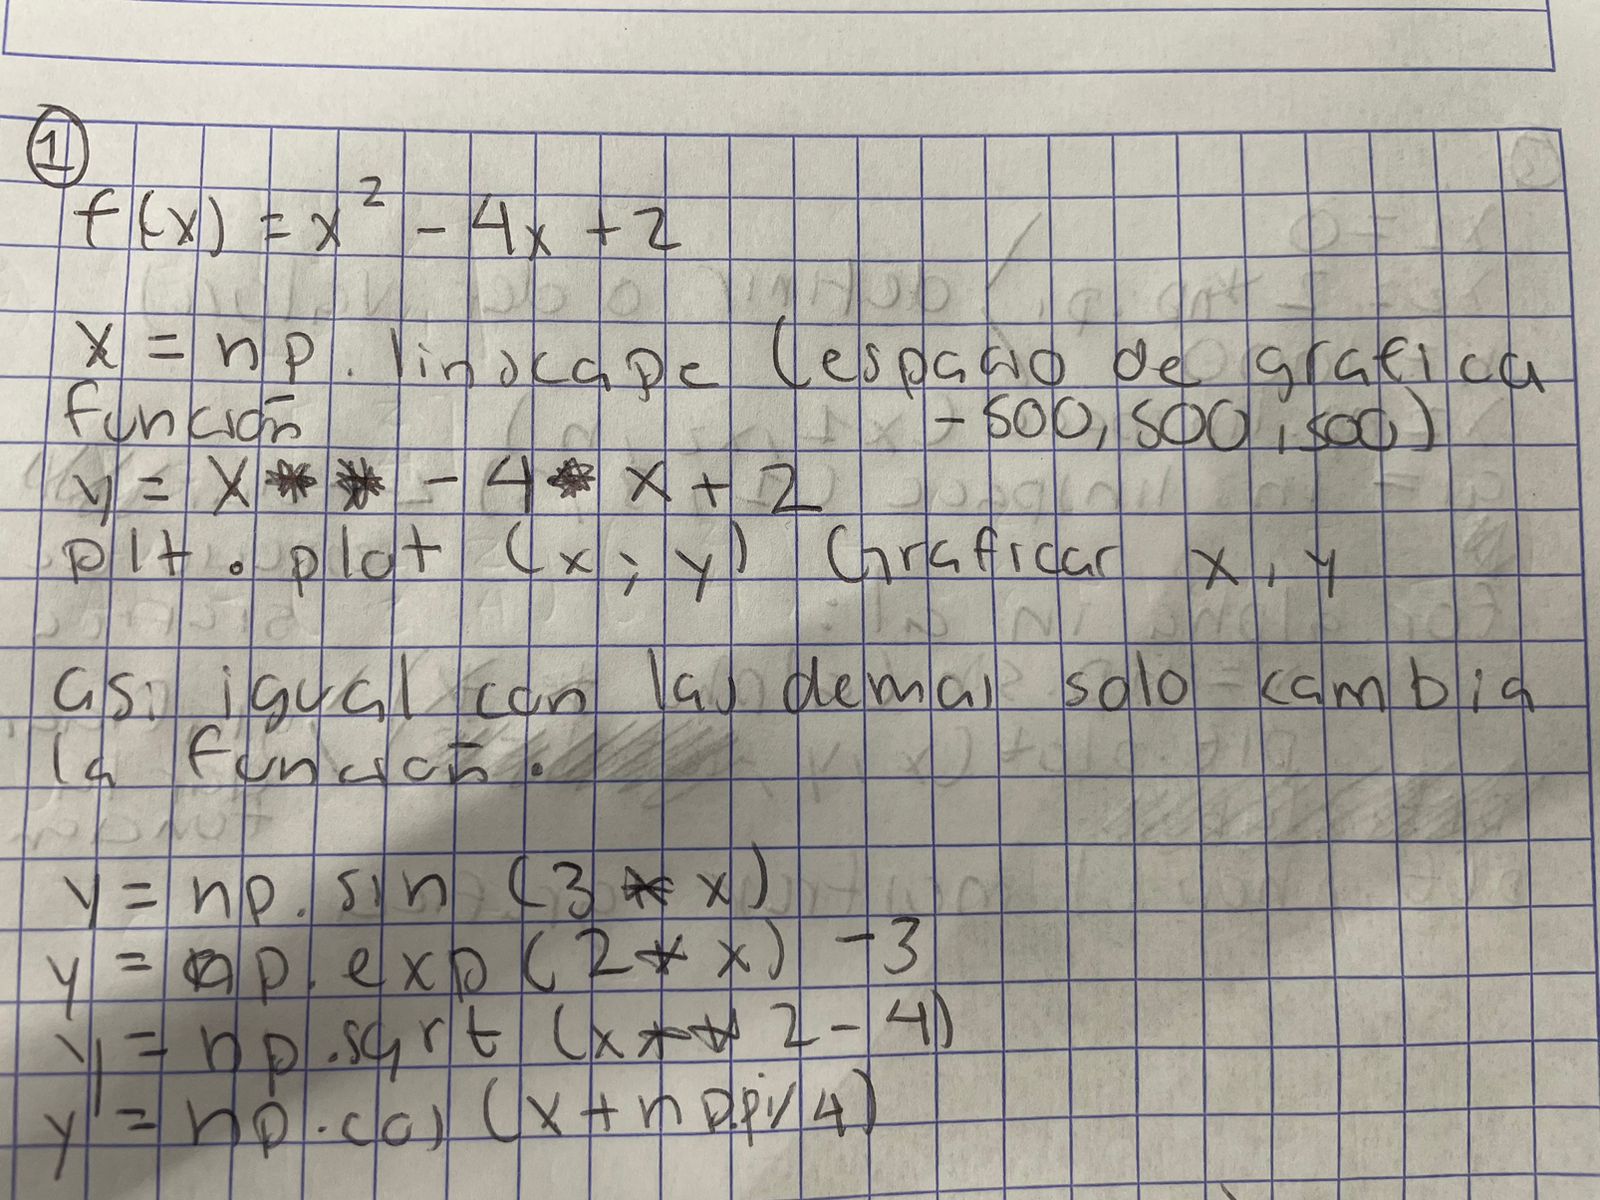 1
f(x) = x² - 4x + 2
x = np. linscape (espacio de grafica
función - 500, 500, 500)
y = x ** - 4 * x + 2
plt . plot (x; y) Graficar x, y
asi igual con las demas solo cambia
la función.
y = np. sin (3 * x)
y = np. exp (2 * x) - 3
y = np .sqrt (x ** 2 - 4)
y = np . cos (x + np.pi/4)